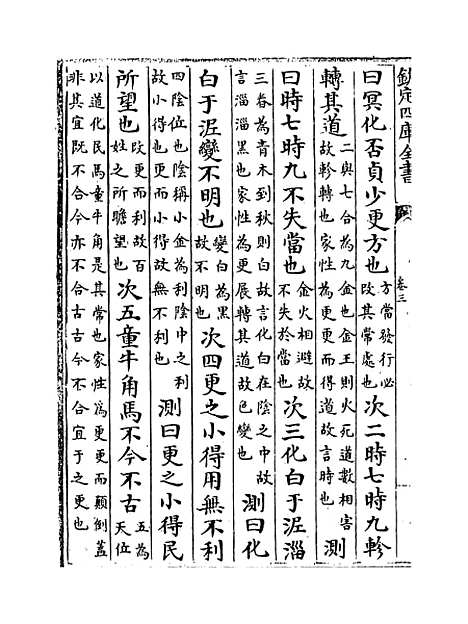 欽定四庫全書
卷三
曰冥化否貞少更方也方當發行必改其常處也次二時七時九軫
轉其道二與七合為九金也金王則火死道數相害故軫轉也家性為更更而得道故言時也測
曰時七時九不失當也金火相避故不失於當也次三化白于泥淄
三春為青木到秋則白故言化白在陰之中故言淄淄黑也家性為更展轉其道故色變也測曰化
白于泥變不明也變白為黑故不明也次四更之小得用無不利
四陰位也陰稱小金為利陰中之利故小得也更而小得故無不利也測曰更之小得民
所望也改更而利故百姓之所瞻望也次五童牛角馬不今不古五為天位
以道化民馬童牛角是其常也家性為更更而顛倒蓋非其宜既不合今亦不合古古今不合宜于之更也